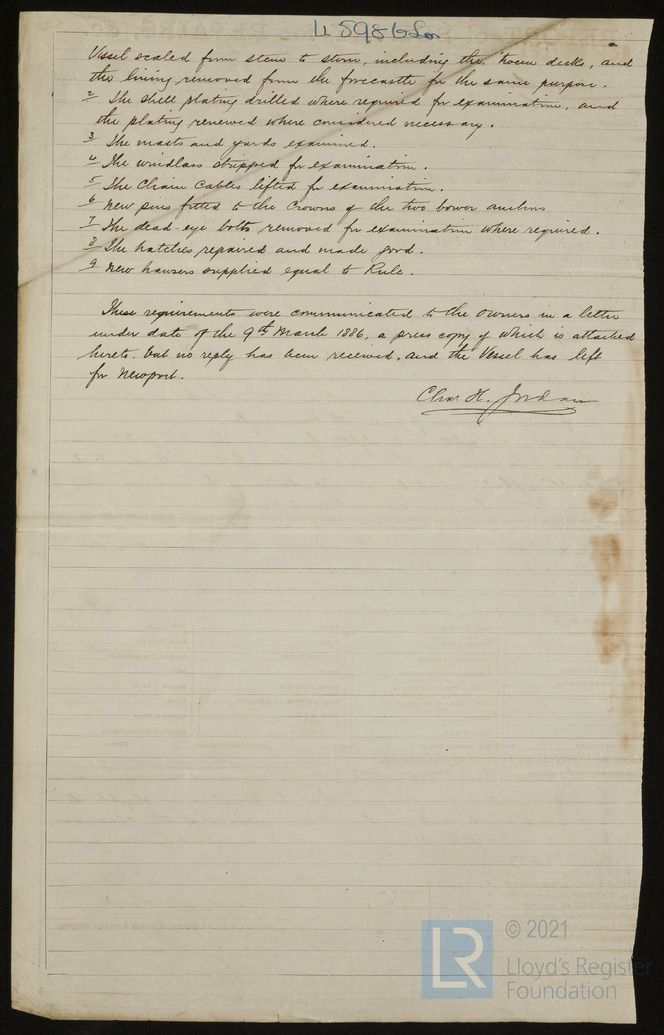 45986 Lon
Vessel scaled from stem to stern, including the 'tween decks, and
the lining removed from the forecastle for the same purpose.
2 The shell plating drilled where required for examination, and
the plating renewed where considered necessary.
3 The masts and yards examined.
4 The windlass stripped for examination.
5 The Chain Cables lifted for examination.
6 New pins fitted to the Crowns of the two bower anchors
7 The dead-eye bolts removed for examination where required.
8 The hatches repaired and made good.
9 New hawsers supplied equal to Rule.
These requirements were communicated to the Owners in a letter
under date of the 9th March 1886, a press copy of which is attached
hereto, but no reply has been received, and the Vessel has left
for Newport.
Chas. H. Jordan
LR
© 2021
Lloyd's Register
Foundation